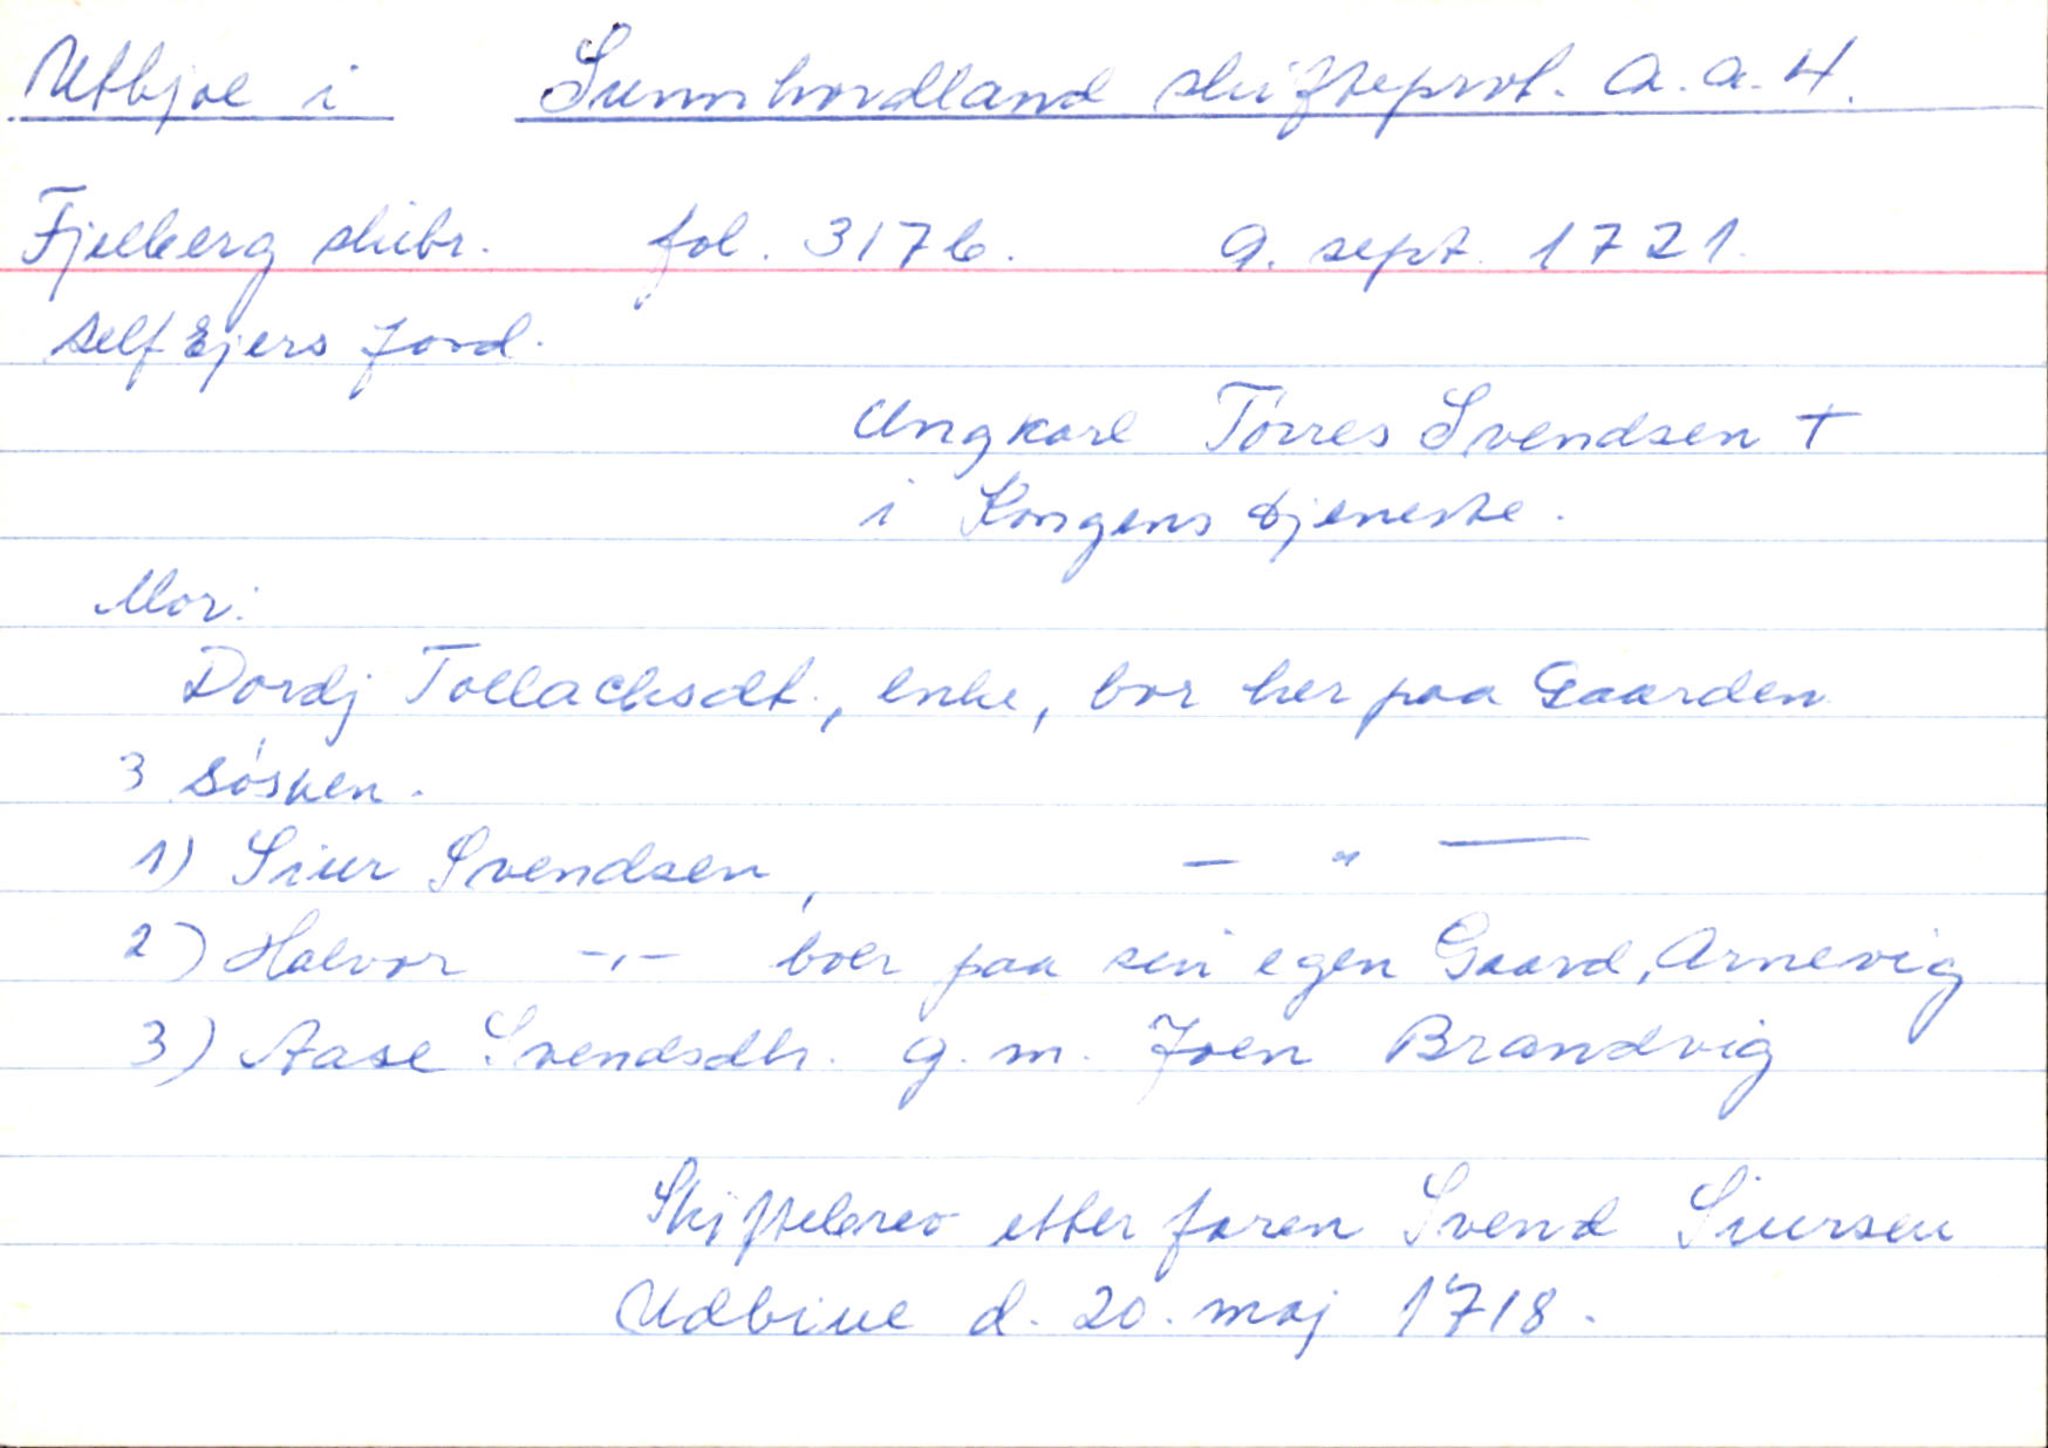 Utbjoe i Sunnhordland skifteprot. A.a.4.
Fjelberg skibr. fol. 317b. 9. sept. 1721.
SelfEjers Jord.
Ungkarl Tørres Svendsen †
i Kongens tjeneste.
Mor:
Dordj Tollachsdt., enke, bor her paa Gaarden
3 søsken.
1) Siur Svendsen, — " —
2) Halvor -"- boer paa sin egen Gaard, Arnevig
3) Aase Svendsdtr. g. m. Joen Brandvig
Skiftebrev etter faren Svend Siursen
Udbiue d. 20. maj 1718.